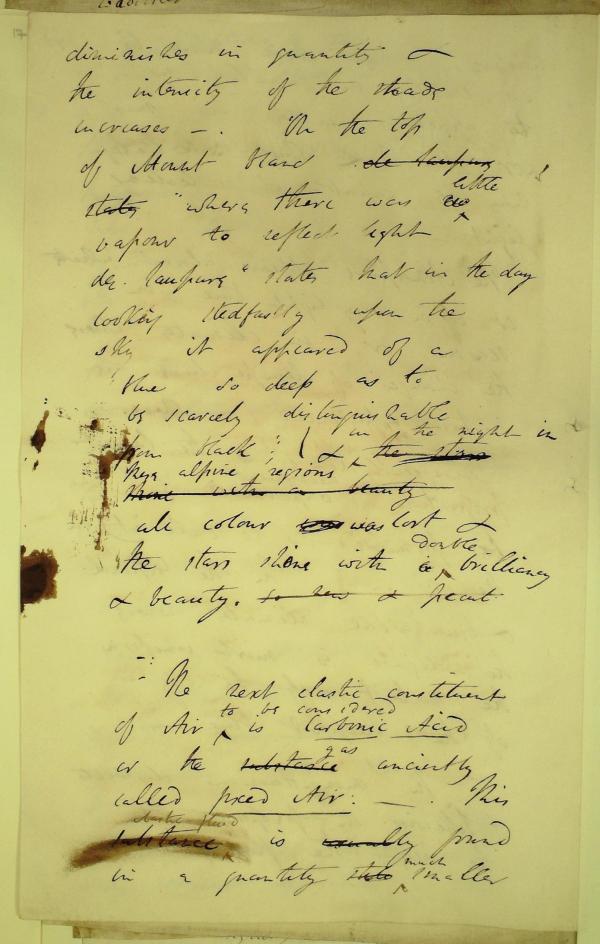 diminishes in quantity &
the intensity of the shade
increases – . On the top
of Mount blanc de Saussure
states "where there was no little
vapour to reflect light
de Saussure" states that in the day
looking stedfastly upon the
sky it appeared of a
blue so deep as to
be scarcely distinguishable
from black; & the stars in the night in
these alpine regions
shine with a beauty
all colour was lost &
the stars shine with a double brilliancy
& beauty. so new & great
The next elastic constituent
of Air to be considered is Carbonic Acid
or the substance gas anciently
called fixed Air. — . This
substance elastic fluid is usually found
in a quantity much smaller